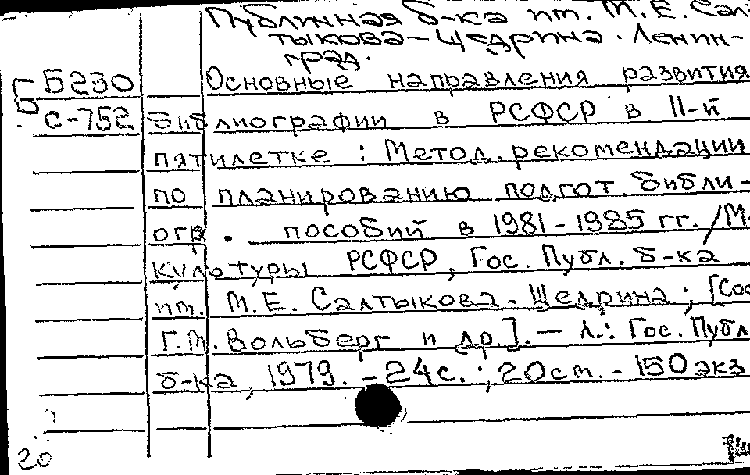 Публичная б-ка им. М.Е. Сал-
тыкова-Щедрина. Ленин-
град.
Б230 Основные направления развития
С-752 библиографии в РСФСР в 11-й
пятилетке : Метод. рекомендации
по планированию подгот. библи-
огр. пособий в 1981-1985 гг. /М-
культуры РСФСР, Гос. Публ. б-ка
им. М.Е. Салтыкова-Щедрина; [Сос
Г.М. Вольберг и др.]. — Л.: Гос. Публ
б-ка, 1979. - 24с. ; 20см. - 150 экз
20